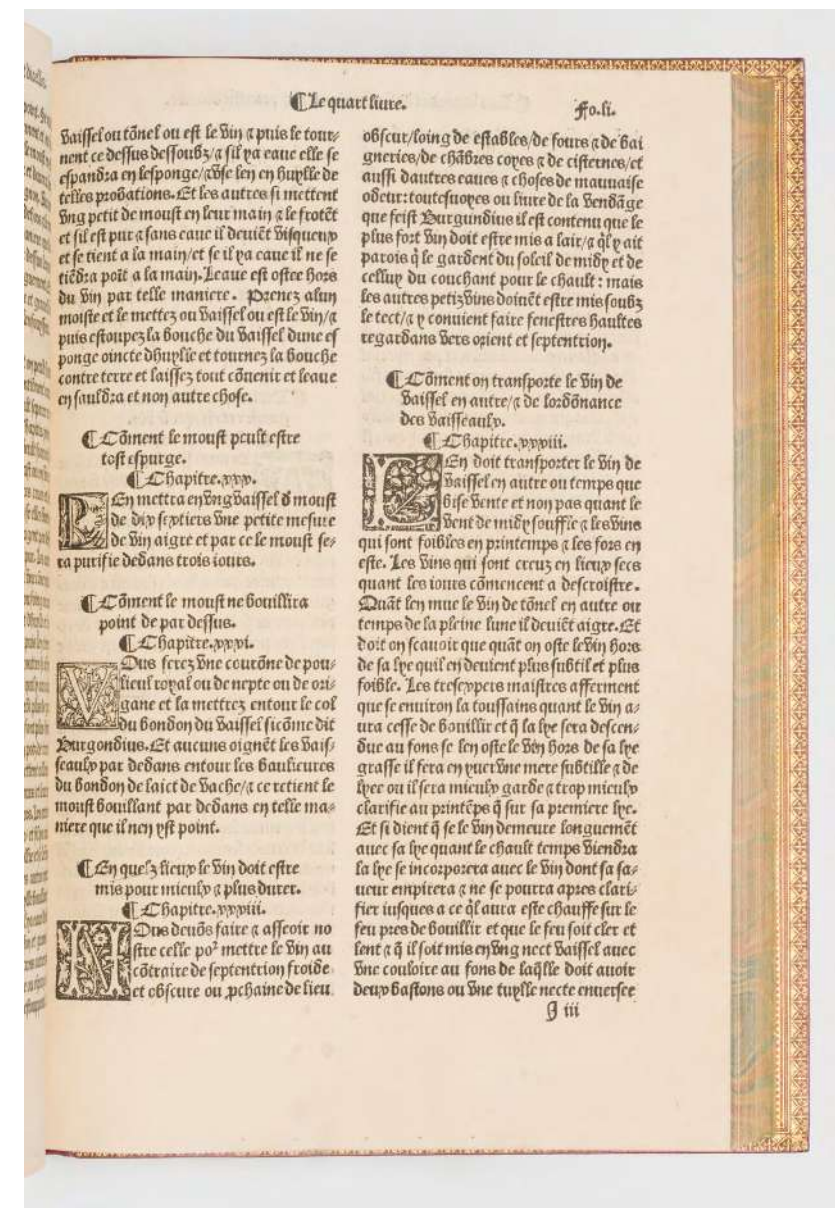 ¶Le quart liure.
Fo.li.
vaissel ou tõnel ou est le vin ⁊ puis le tour⸗
nent ce dessus dessoubz/⁊ sil ya eaue elle se
espandra en lesponge/⁊ vse len en huylle de
telles probations. Et les autres si mettent
vng petit de moust en leur main ⁊ le frotẽt
et sil est pur ⁊ sans eaue il deuiẽt visqueux
et se tient a la main/et se il ya eaue il ne se
tiẽdra poĩt a la main. Leaue est ostee hors
du vin par telle maniere. Prenez alun
moiste et le mettez ou vaissel ou est le vin/⁊
puis estoupez la bouche du vaissel dune es
ponge oincte dhuylle et tournez la bouche
contre terre et laissez tout cõuenir et leaue
en sauldra et non autre chose.
¶Cõment le moust peult estre
tost espurge.
¶Chapitre.xxv.
LEn mettra en vng vaissel d moust
de dix sextiers vne petite mesure
de vin aigre et par ce le moust se⸗
ra purifie dedans trois iours.
¶Cõment le moust ne bouillira
point de par dessus.
¶Chapitre.xxvi.
VOus ferez vne courõne de pou⸗
lieul royal ou de nepte ou de ori⸗
gane et la mettrez entour le col
du bondon du vaissel sicõme dit
Burgondius. Et aucuns oignẽt les vais⸗
seaulx par dedans entour les baulieures
du bondon de laict de vache/⁊ ce retient le
moust bouillant par dedans en telle ma⸗
niere que il nen yst point.
¶En quelz lieux le vin doit estre
mis pour mieulx ⁊ plus durer.
¶Chapitre.xxviii.
NOus deuõs faire ⁊ asseoir no
stre celle poꝰ mettre le vin au
cõtraire de septentrion froide
et obscure ou ꝓchaine de lieu
obscur/loing de estables/de fours ⁊ de bai
gneries/de chãbres coyes ⁊ de cisternes/et
aussi dautres eaues ⁊ choses de mauuaise
odeur: toutesuoyes ou liure de la vendãge
que feist Burgundius il est contenu que le
plus fort vin doit estre mis a lair/⁊ q̃l y ait
parois q̃ le gardent du soleil de midy et de
celluy du couchant pour le chault: mais
les autres petiz vins doiuẽt estre mis soubz
le tect/⁊ y conuient faire fenestres haultes
regardans vers orient et septentrion.
¶Cõment on transporte le vin de
vaissel en autre/⁊ de lordõnance
des vaisseaulx.
¶Chapitre.xxviii.
LEn doit transporter le vin de
vaissel en autre ou temps que
bise vente et non pas quant le
vent de midy souffle ⁊ les vins
qui sont foibles en printemps ⁊ les fors en
este. Les vins qui sont creuz en lieux secs
quant les iours cõmencent a descroistre.
Quãt len mue le vin de tõnel en autre ou
temps de la pleine lune il deuiẽt aigre. Et
doit on scauoir que quãt on oste le vin hors
de sa lye quil en deuient plus subtil et plus
foible. Les tresexpers maistres afferment
que se enuiron la toussains quant le vin a⸗
ura cesse de bouillir et q̃ la lye sera descen⸗
due au fons se len oste le vin hors de sa lye
grasse il fera en yuer vne mere subtille ⁊ de
lyee ou il sera mieulx garde ⁊ trop mieulx
clarifie au printẽps q̃ sur sa premiere lye.
Et si dient q̃ se le vin demeure longuemẽt
auec sa lye quant le chault temps viendra
la lye se incorporera auec le vin dont sa sa⸗
ueur empirera ⁊ ne se pourra apres clari⸗
fier iusques a ce q̃l aura este chauffe sur le
feu pres de bouillir et que le feu soit cler et
lent ⁊ q̃ il soit mis en vng nect vaissel auec
vne couloire au fons de laq̃lle doit auoir
deux bastons ou vne tuylle necte enuersee
I iii